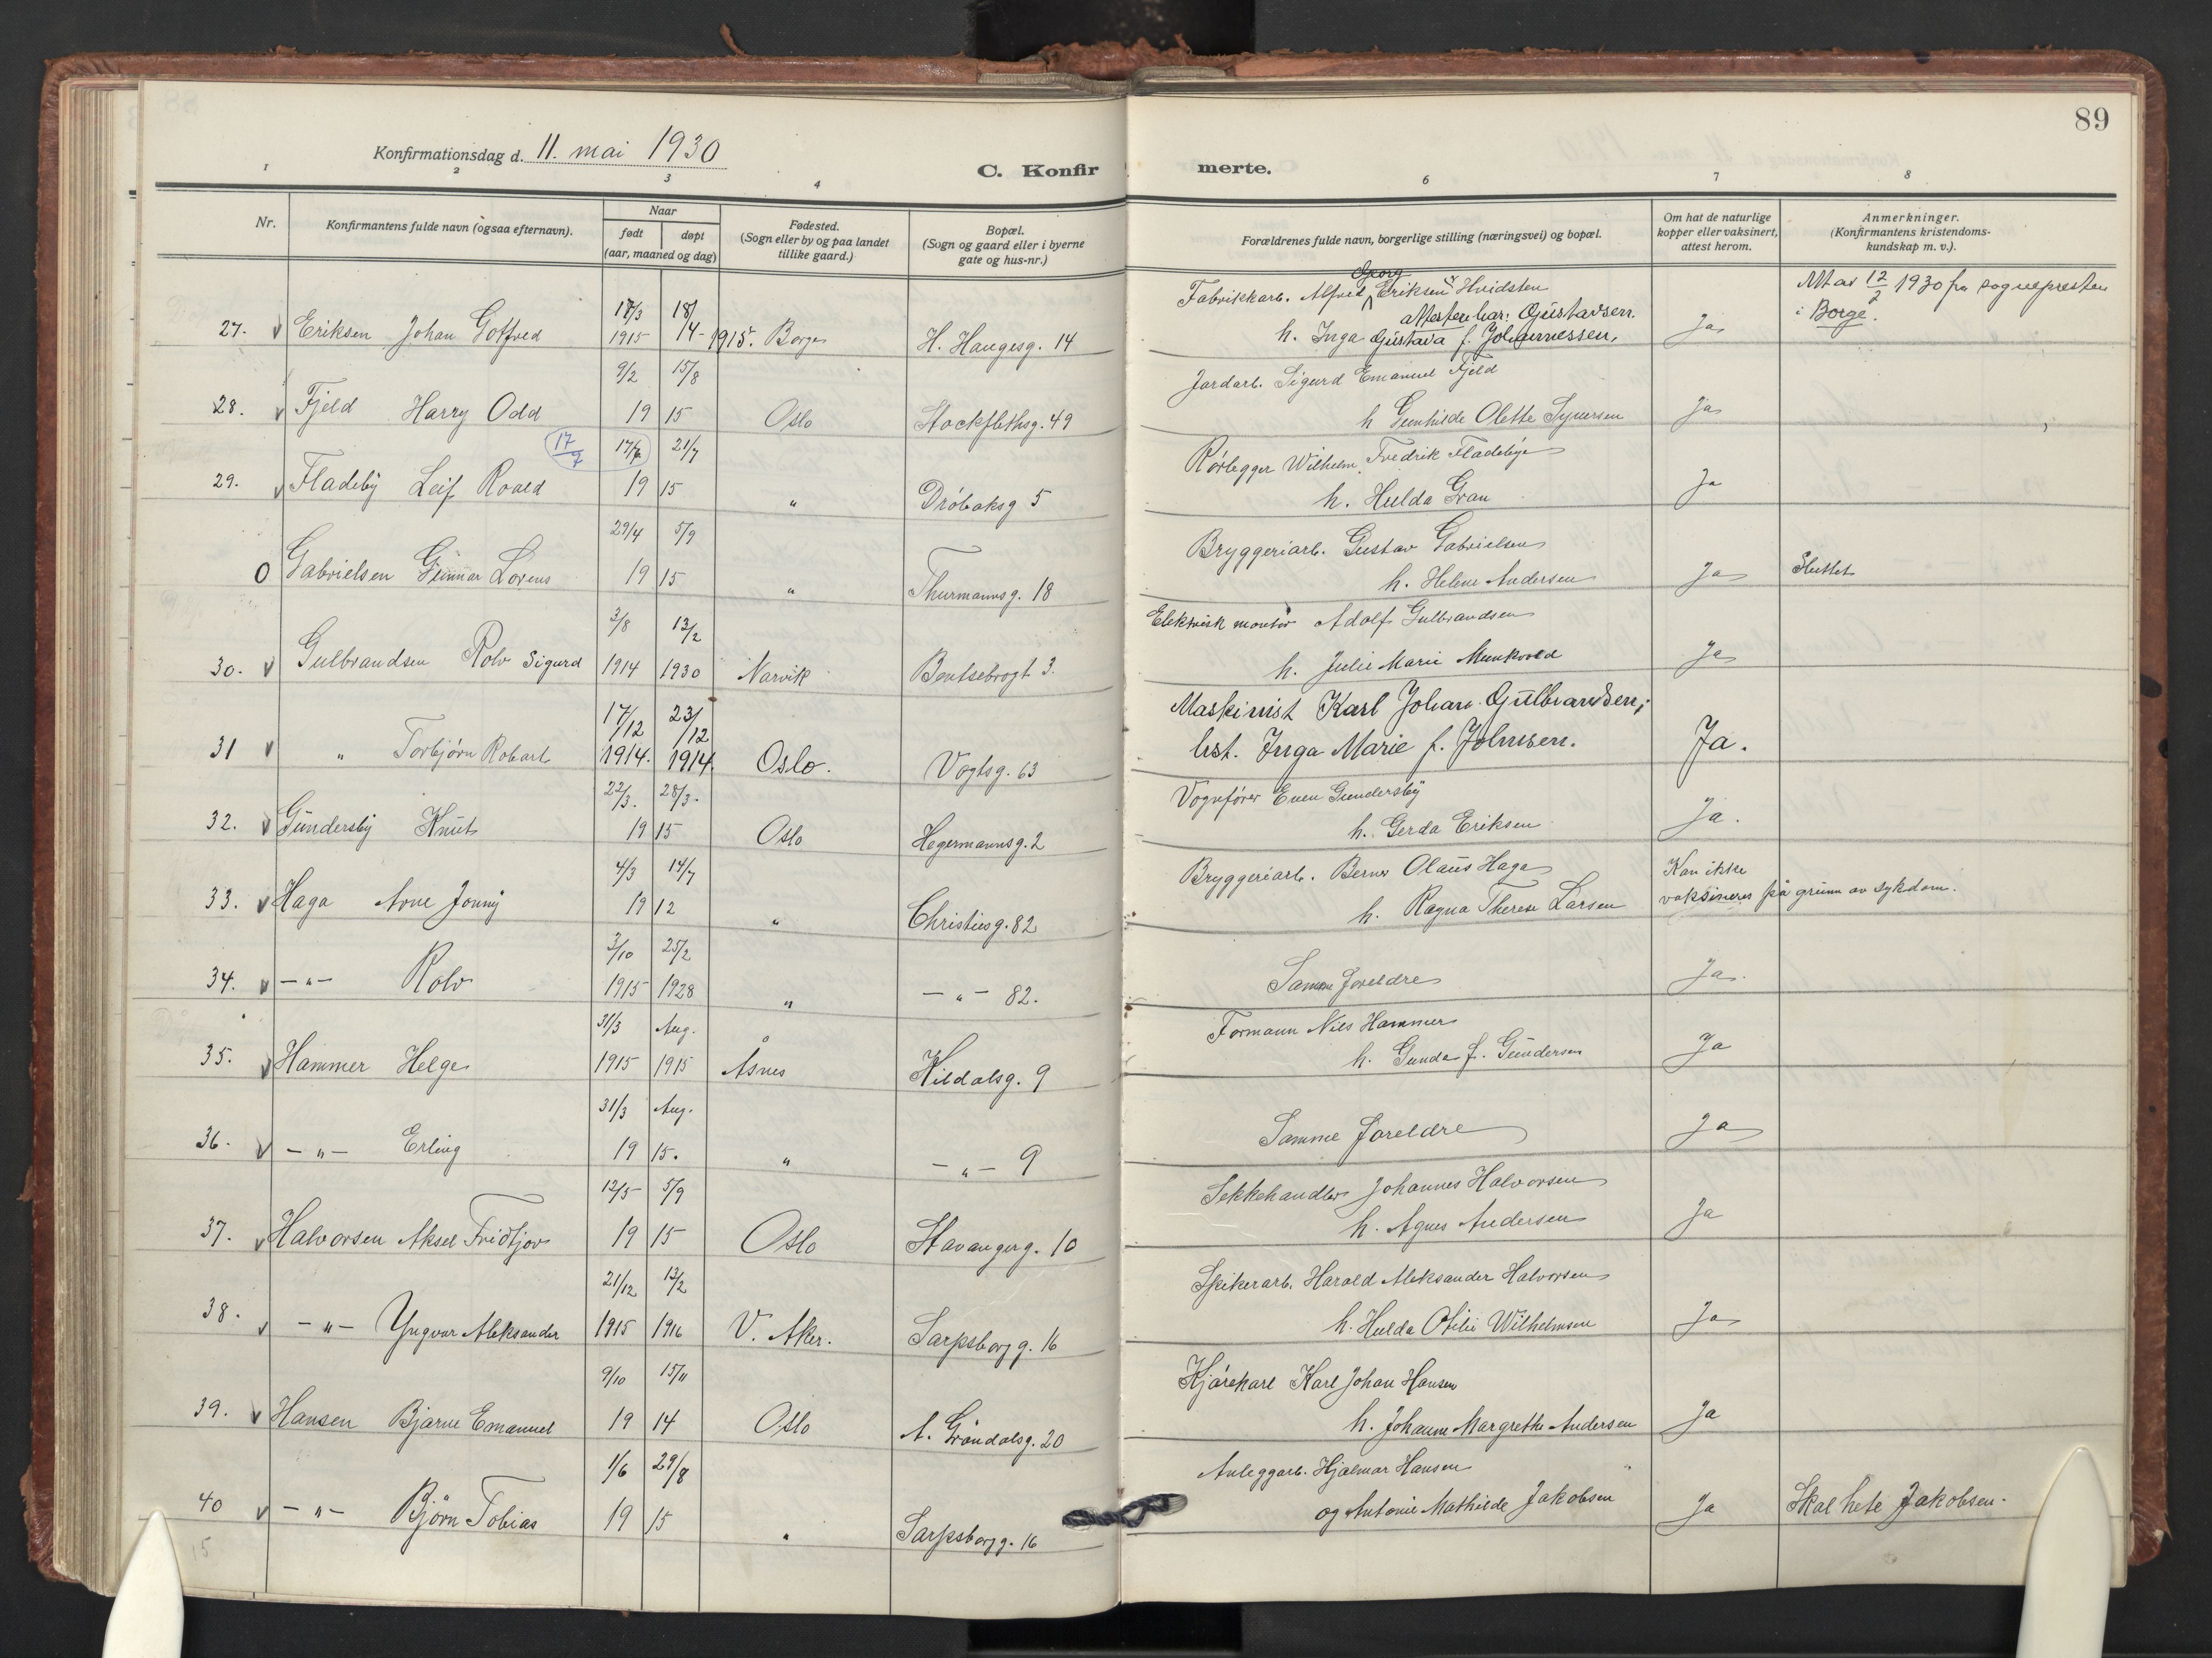 89
Konfirmationsdag d. 11. mai 1930
C. Konfirmerte.
1 2 3 4 6 7 8
Nr. Konfirmantens fulde navn (ogsaa efternavn). Naar født døpt (aar, maaned og dag) Fødested. (Sogn eller by og paa landet tillike gaard.) Bopæl. (Sogn og gaard eller i byerne gate og hus-nr.) Forældrenes fulde navn, borgerlige stilling (næringsvei) og bopæl. Om hat de naturlige kopper eller vaksinert, attest herom. Anmerkninger. (Konfirmantens kristendoms-kundskap m. v.).
27. Eriksen Johan Gotfred 17/3 1915 18/ 14-1915. Borge H. Haugesg. 14 Fabrikkarb. Alfred Georg Eriksen Hvidsten attesten har: Gustavsen. h. Inga Gustava f. Johannessen, Ja Att av 12/2 1930 fra sognepresten i Borge.
28. Fjeld Harry Odd 9/2 15/8 1915 Oslo Stockflethsg. 49 Jordarb. Sigurd Emanuel Fjeld h Gunhilde Olette Syversen Ja
29. Fladeby Leif Roald 17/7 21/7 1915 " Drøbaksg 5 Rørlegger Wilhelm Fredrik Fladebye h. Hulda Gran Ja
0 Gabrielsen Gunnar Lorens 29/4 5/9 1915 " Thurmannsg. 18 Bryggeriarb. Gustav Gabrielsen h. Helene Andersen Ja Sluttet
30. Gulbrandsen Rolv Sigurd 3/8 1914 13/2 1930 Narvik Bentsebrogt 3. Elektrisk montør Adolf Gulbrandsen h. Julie Marie Munkvold Ja
31 " Torbjørn Robert 17/12 1914. 23/12 1914. Oslo. Vogtsg. 63 Maskinist Karl Johan Gulbrandsen; hst. Inga Marie f. Johnsen. Ja.
32. Gundersby Knut 22/3. 28/3. 1915 Oslo Hegermannsg. 2 Vognfører Even Gundersby h. Gerda Eriksen Ja.
33. Haga Arne Jonny 4/3 14/7 1912 " Christiesg. 82 Bryggeriarb. Berner Olaus Haga h. Ragna Therese Larsen Kan ikke vaksineres på grunn av sykdom.
34. -"- Rolv 3/10 1915 25/2 1928 " -"- 82. Samme foreldre Ja.
35. Hammer Helge 31/3 1915 Aug. 1915 Åsnes Hildalsg. 9 Formann Nils Hammer h. Gunda f. Gundersen Ja
36. -"- Erling 31/3 Aug. 1915. " -"- 9 Samme foreldre Ja
37. Halvorsen Aksel Fridtjov 12/5 5/9 1915 Oslo Stavangerg. 10 Sekkehandler Johannes Halvorsen h. Agnes Andersen Ja
38. -"- Yngvar Aleksander 21/12 1915 13/2 1916 V. Aker. Sarpsborgg. 16 Spikerarb. Harald Aleksander Halvorsen h. Hulda Otilie Wilhelmsen Ja
39. Hansen Bjarne Emanuel 9/10 15/11 1914 Oslo A. Grøndalsg. 20 Kjørekarl Karl Johan Hansen h. Johanne Margrethe Andersen Ja
40 -"- Bjørn Tobias 1/6 29/8 1915 " Sarpsborgg. 16 Anleggarb. Hjalmar Hansen og Antonie Mathilde Jakobsen Ja Skal hete Jakobsen.
15